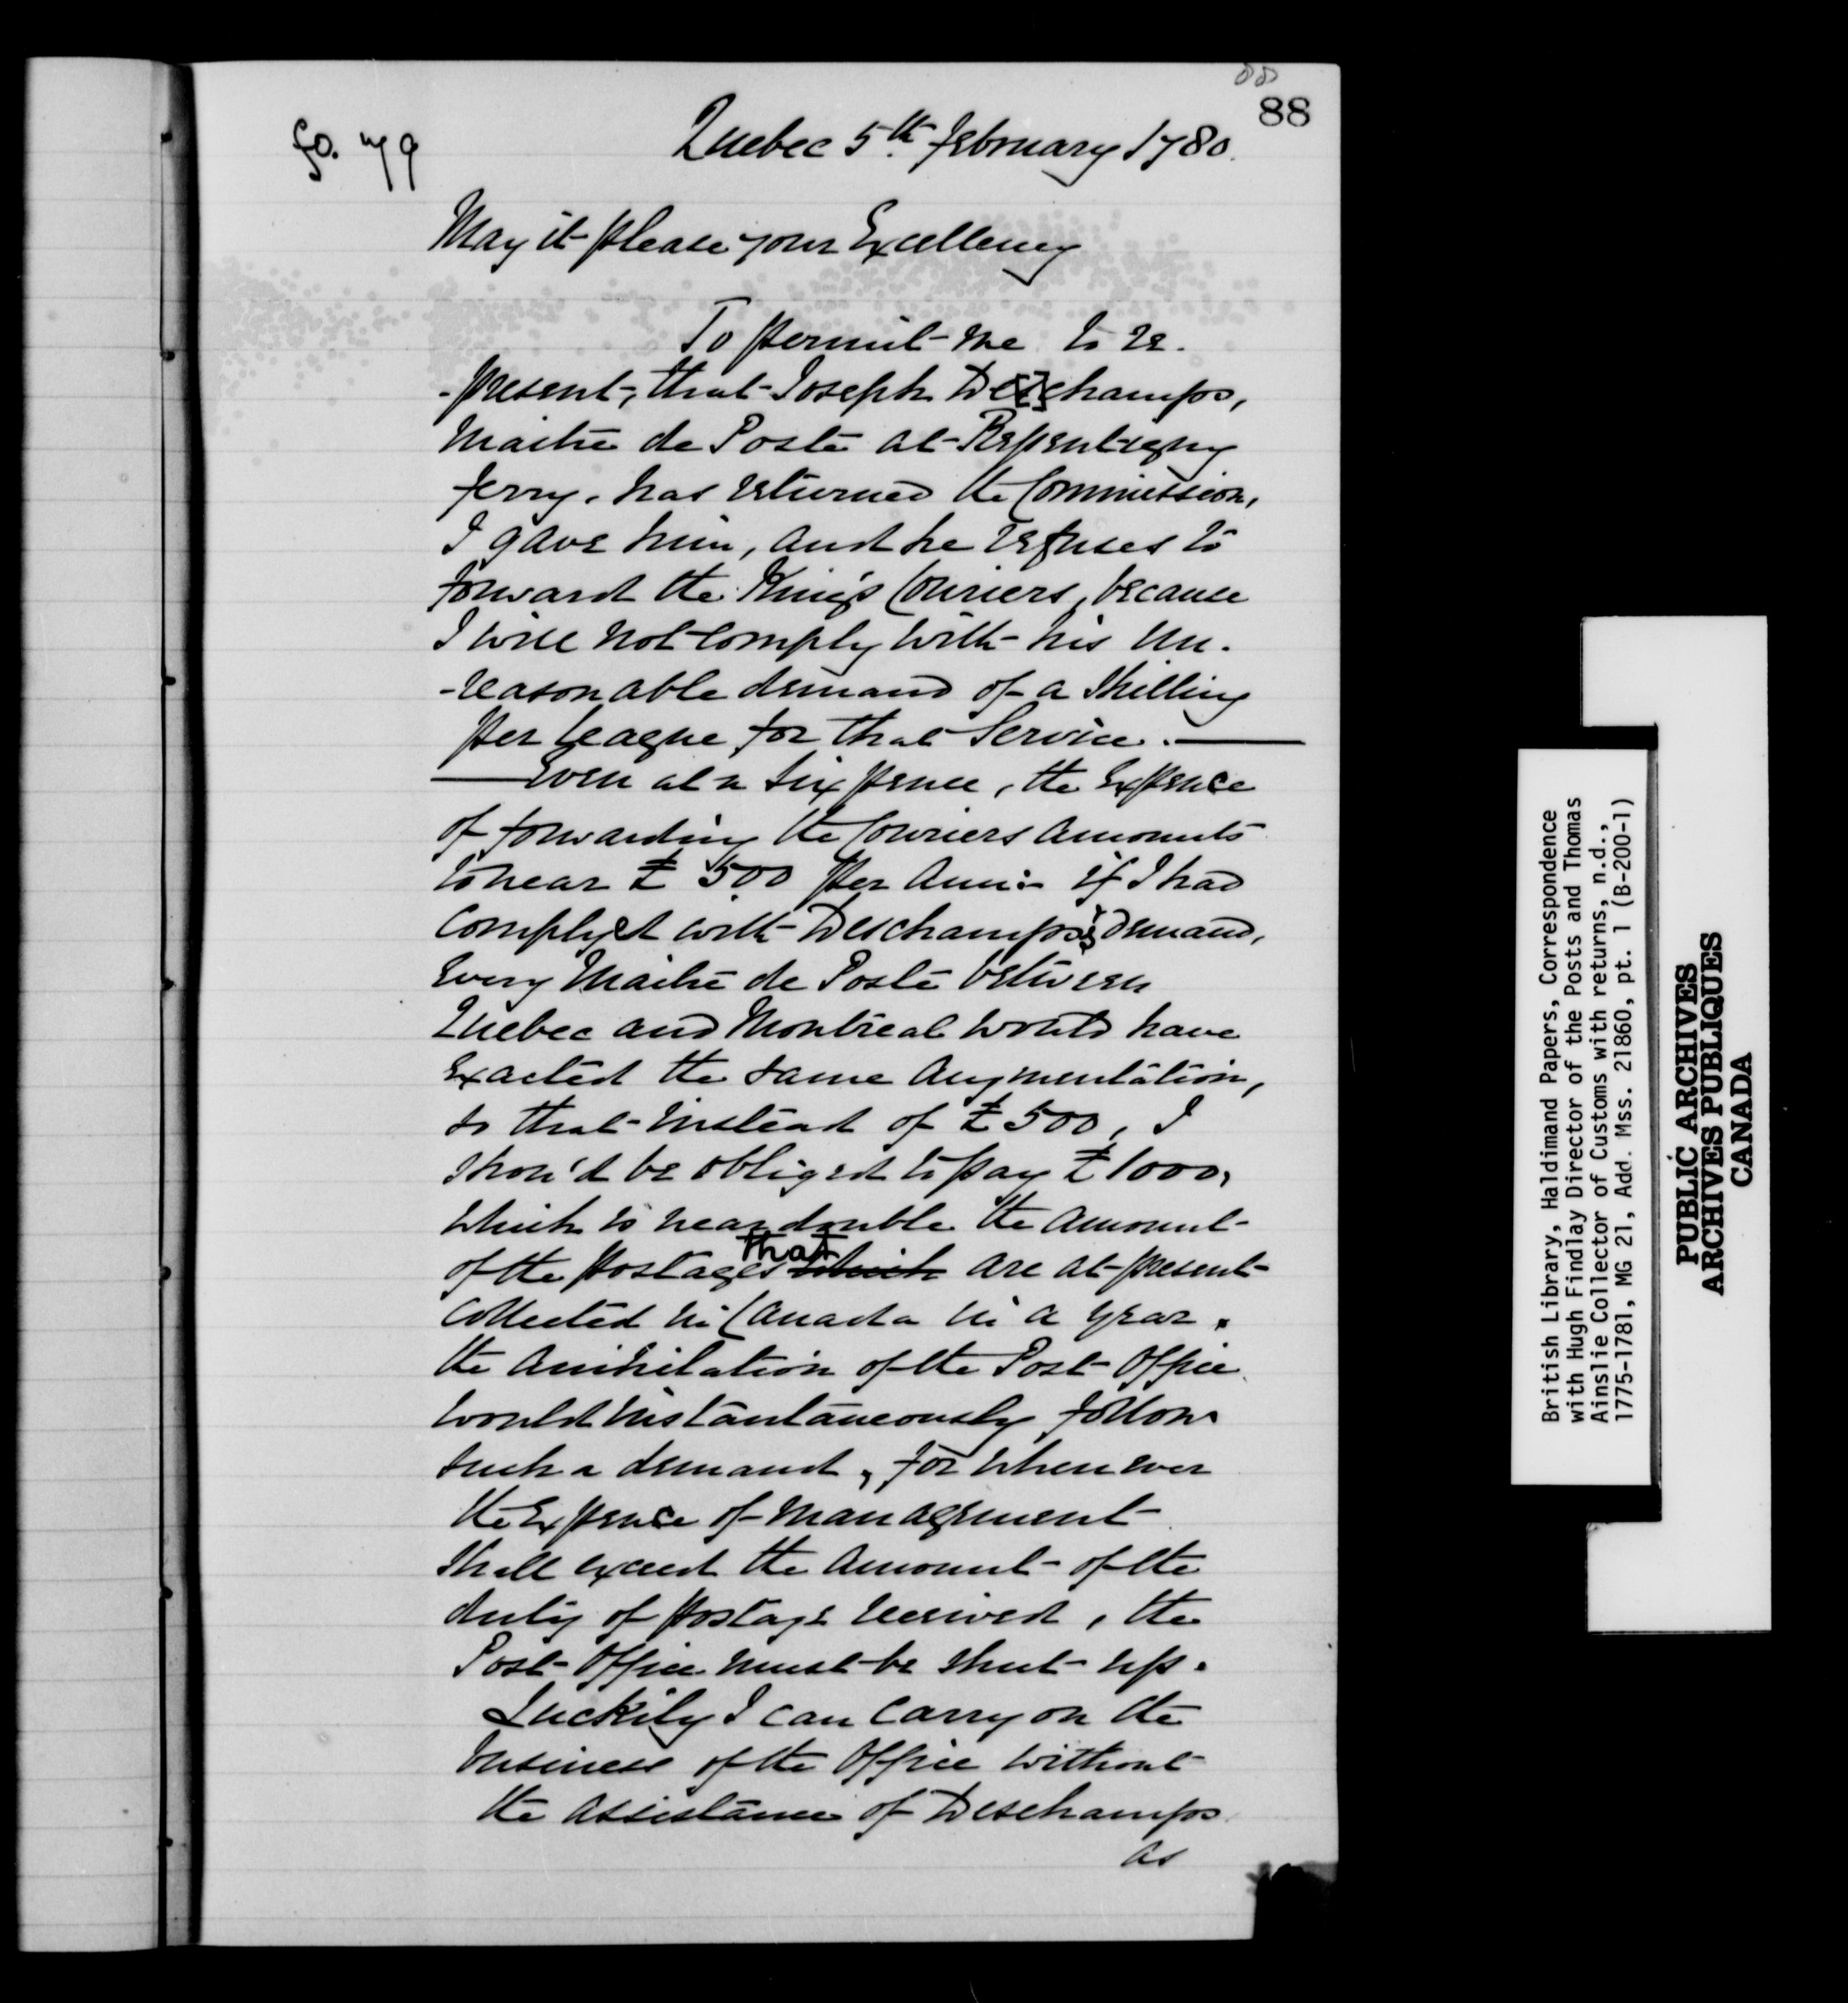 88
88
fo. 79
Quebec 5th. February 1780.
May it please your Excellency
To permit me to re-
-present, that Joseph De[s]champs,
Maitre de Poste at Repentigny
ferry, has returned the Commission,
I gave him, and he refuses to
forward the King's Couriers, because
I will not comply with his un-
-reasonable demand of a Shilling
per League for that Service. —
— Even at a Six pence, the Expence
of forwarding the Couriers amounts
to near £ 500 per Ann: if I had
complyed with Deschamps's demand,
Every Maitre de Poste between
Quebec and Montreal would have
Exacted the same augmentation,
so that instead of £500, I
shou'd be obliged to pay £1000,
which is near double the amount
of the postages which that are at present
Collected in Canada in a year.
the anihilation of the Post Office
would instantaneously follow
such a demand, for when ever
the Expence of management
shall exceed the amount of the
duty of postage received, the
Post Office must be shut up.
Luckily I can carry on the
business of the Office without
the assistance of Deschamps
as
British Library, Haldimand Papers, Correspondence
with Hugh Findlay Director of the Posts and Thomas
Ainslie Collector of Customs with returns, n.d.,
1775-1781, MG 21, Add. Mss. 21860, pt. 1 (B-200-1)
PUBLIC ARCHIVES
ARCHIVES PUBLIQUES
CANADA